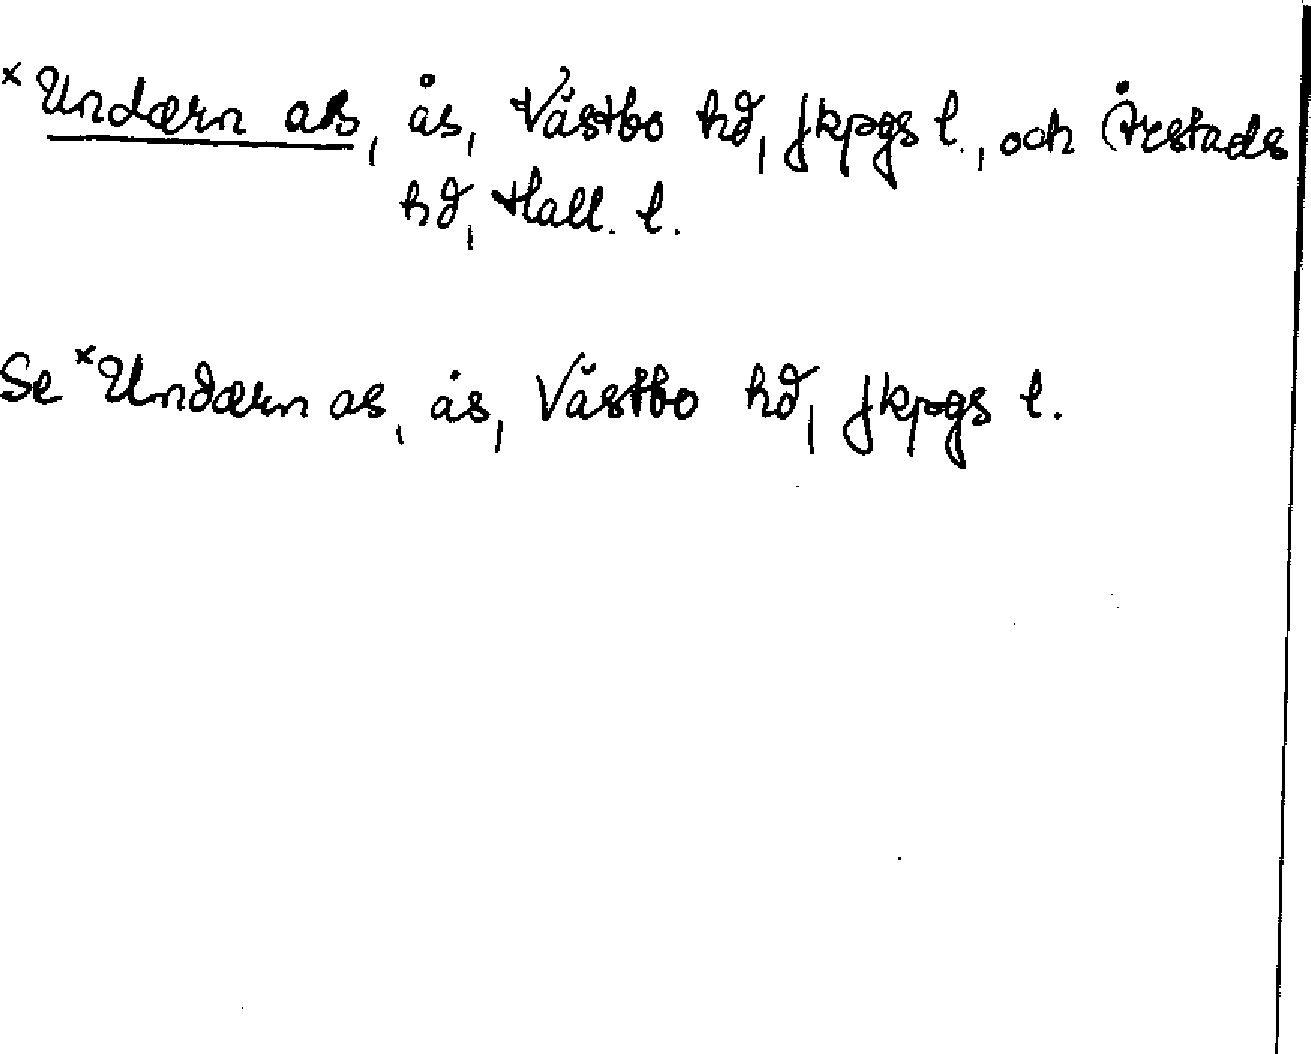 × Undærn as, ås, Västbo hd, Jkpgs l., och Årstads
hd, Hall. l.
Se × Undærn as, ås, Västbo hd, Jkpgs l.